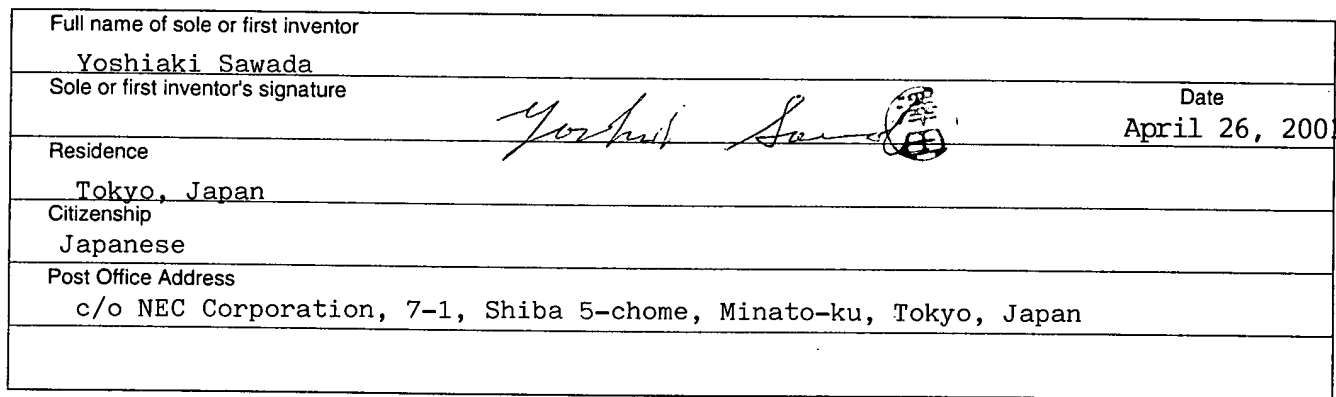 Full name of sole or first inventor
Yoshiaki Sawada
Sole or first inventor's signature
Date
April 26, 2001
Residence
Tokyo, Japan
Citizenship
Japanese
Post Office Address
c/o NEC Corporation, 7-1, Shiba 5-chome, Minato-ku, Tokyo, Japan